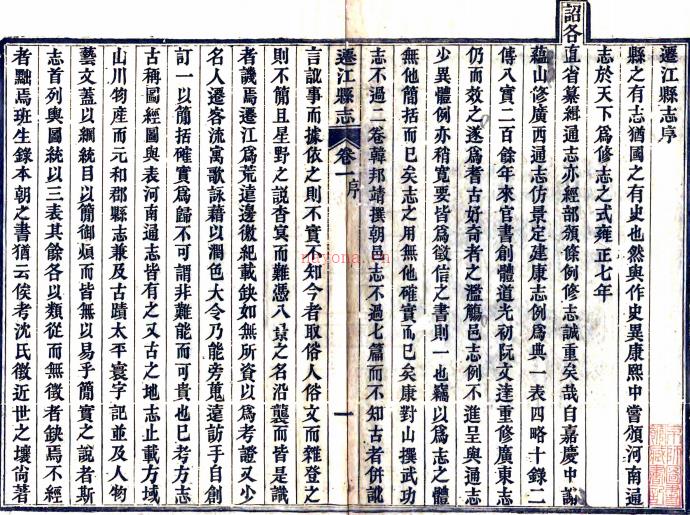 遷江縣志序
縣之有志猶國之有史也然與作史異康熙中嘗頒河南通
志於天下爲修志之式雍正七年
詔各直省纂緝通志亦經部頒條例修志誠重矣哉自嘉慶中謝
蘊山修廣西通志仿景定建康志例爲典一表四略十錄二
傳八實二百餘年來官書創體道光初阮文達重修廣東志
仍而效之遂爲耆古好奇者之濫觴邑志例不進呈與通志
少異體例亦稍寬要皆爲徵信之書則一也竊以爲志之體
無他簡括而已矣志之用無他確實而已矣康對山撰武功
志不過二卷韓邦靖撰朝邑志不過七篇而不知古者併訛
遷江縣志 卷一 序 一
言訛事而據依之則不實不知今者取俗人俗文而雜登之
則不簡且星野之說杳冥而難憑八景之名沿襲而皆是識
者譏焉遷江爲荒遠邊徼紀載缺如無所資以爲考證又少
名人遷客流寓歌詠藉以潤色大令乃能旁蒐遠訪手自創
訂一以簡括確實爲歸不可謂非難能而可貴也已考方志
古稱圖經圖與表河南通志皆有之又古之地志止載方域
山川物産而元和郡縣志兼及古蹟太平寰宇記並及人物
藝文蓋以綱統目以簡御煩而皆無以易乎簡實之說者斯
志首列輿圖統以三表其餘各以類從而無徵者缺焉不經
者黜焉班生錄本朝之書猶云俟考沈氏徵近世之壤尙著
nayona.cn